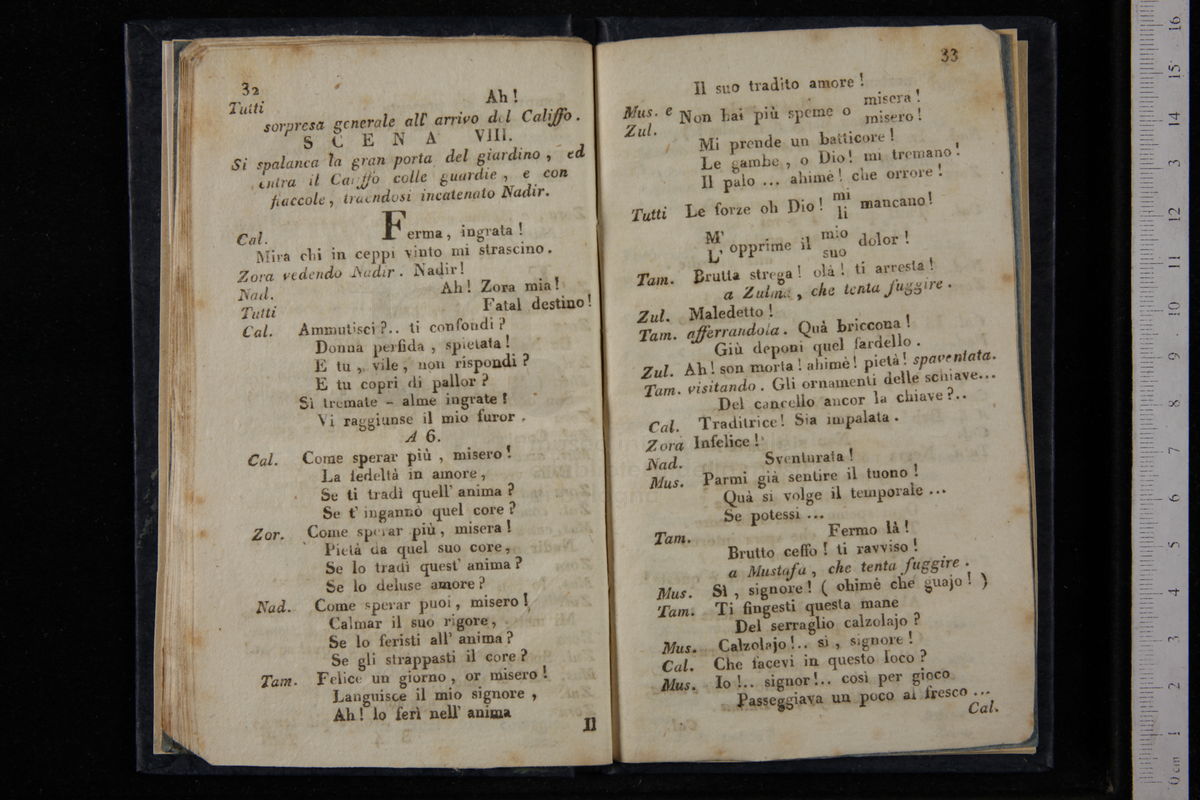 32
Ah!
Tutti
sorpresa generale all' arrivo del Califfo.
SCENA VIII.
Si spalanca la gran porta del giardino, ed
entra il Califfo colle guardie, e con
fiaccole, traendosi incatenato Nadir.
Cal. Ferma, ingrata!
Mira chi in ceppi vinto mi strascino.
Zora vedendo Nadir. Nadir!
Nad. Ah! Zora mia!
Tutti Fatal destino!
Cal. Ammutisci?.. ti confondi?
Donna perfida, spietata!
E tu, vile, non rispondi?
E tu copri di pallor?
Sì tremate - alme ingrate!
Vi raggiunse il mio furor.
A 6.
Cal. Come sperar più, misero!
La fedeltà in amore,
Se ti tradì quell' anima?
Se t' ingannò quel core?
Zor. Come sperar più, misera!
Pietà da quel suo core,
Se lo tradì quest' anima?
Se lo deluse amore?
Nad. Come sperar puoi, misero!
Calmar il suo rigore,
Se lo feristi all' anima?
Se gli strappasti il core?
Tam. Felice un giorno, or misero!
Languisce il mio signore,
Ah! lo ferì nell' anima
Il
33
Il suo tradito amore!
Mus. e Zul. Non hai più speme o misera! misero!
Mi prende un batticore!
Le gambe, o Dio! mi tremano!
Il palo ... ahimè! che orrore!
Tutti Le forze oh Dio! mi li mancano!
M' L' opprime il mio suo dolor!
Tam. Brutta strega! olà! ti arresta!
a Zulma, che tenta fuggire.
Zul. Maledetto!
Tam. afferrandola. Quà briccona!
Giù deponi quel fardello.
Zul. Ah! son morta! ahimè! pietà! spaventata.
Tam. visitando. Gli ornamenti delle schiave...
Del cancello ancor la chiave?..
Cal. Traditrice! Sia impalata.
Zora Infelice!
Nad. Sventurata!
Mus. Parmi già sentire il tuono!
Quà si volge il temporale ...
Se potessi ...
Tam. Fermo là!
Brutto ceffo! ti ravviso!
a Mustafa, che tenta fuggire.
Mus. Sì, signore! ( ohimè che guajo! )
Tam. Ti fingesti questa mane
Del serraglio calzolajo?
Mus. Calzolajo!.. sì, signore!
Cal. Che facevi in questo loco?
Mus. Io!.. signor!.. così per gioco
Passeggiava un poco al fresco ...
Cal.